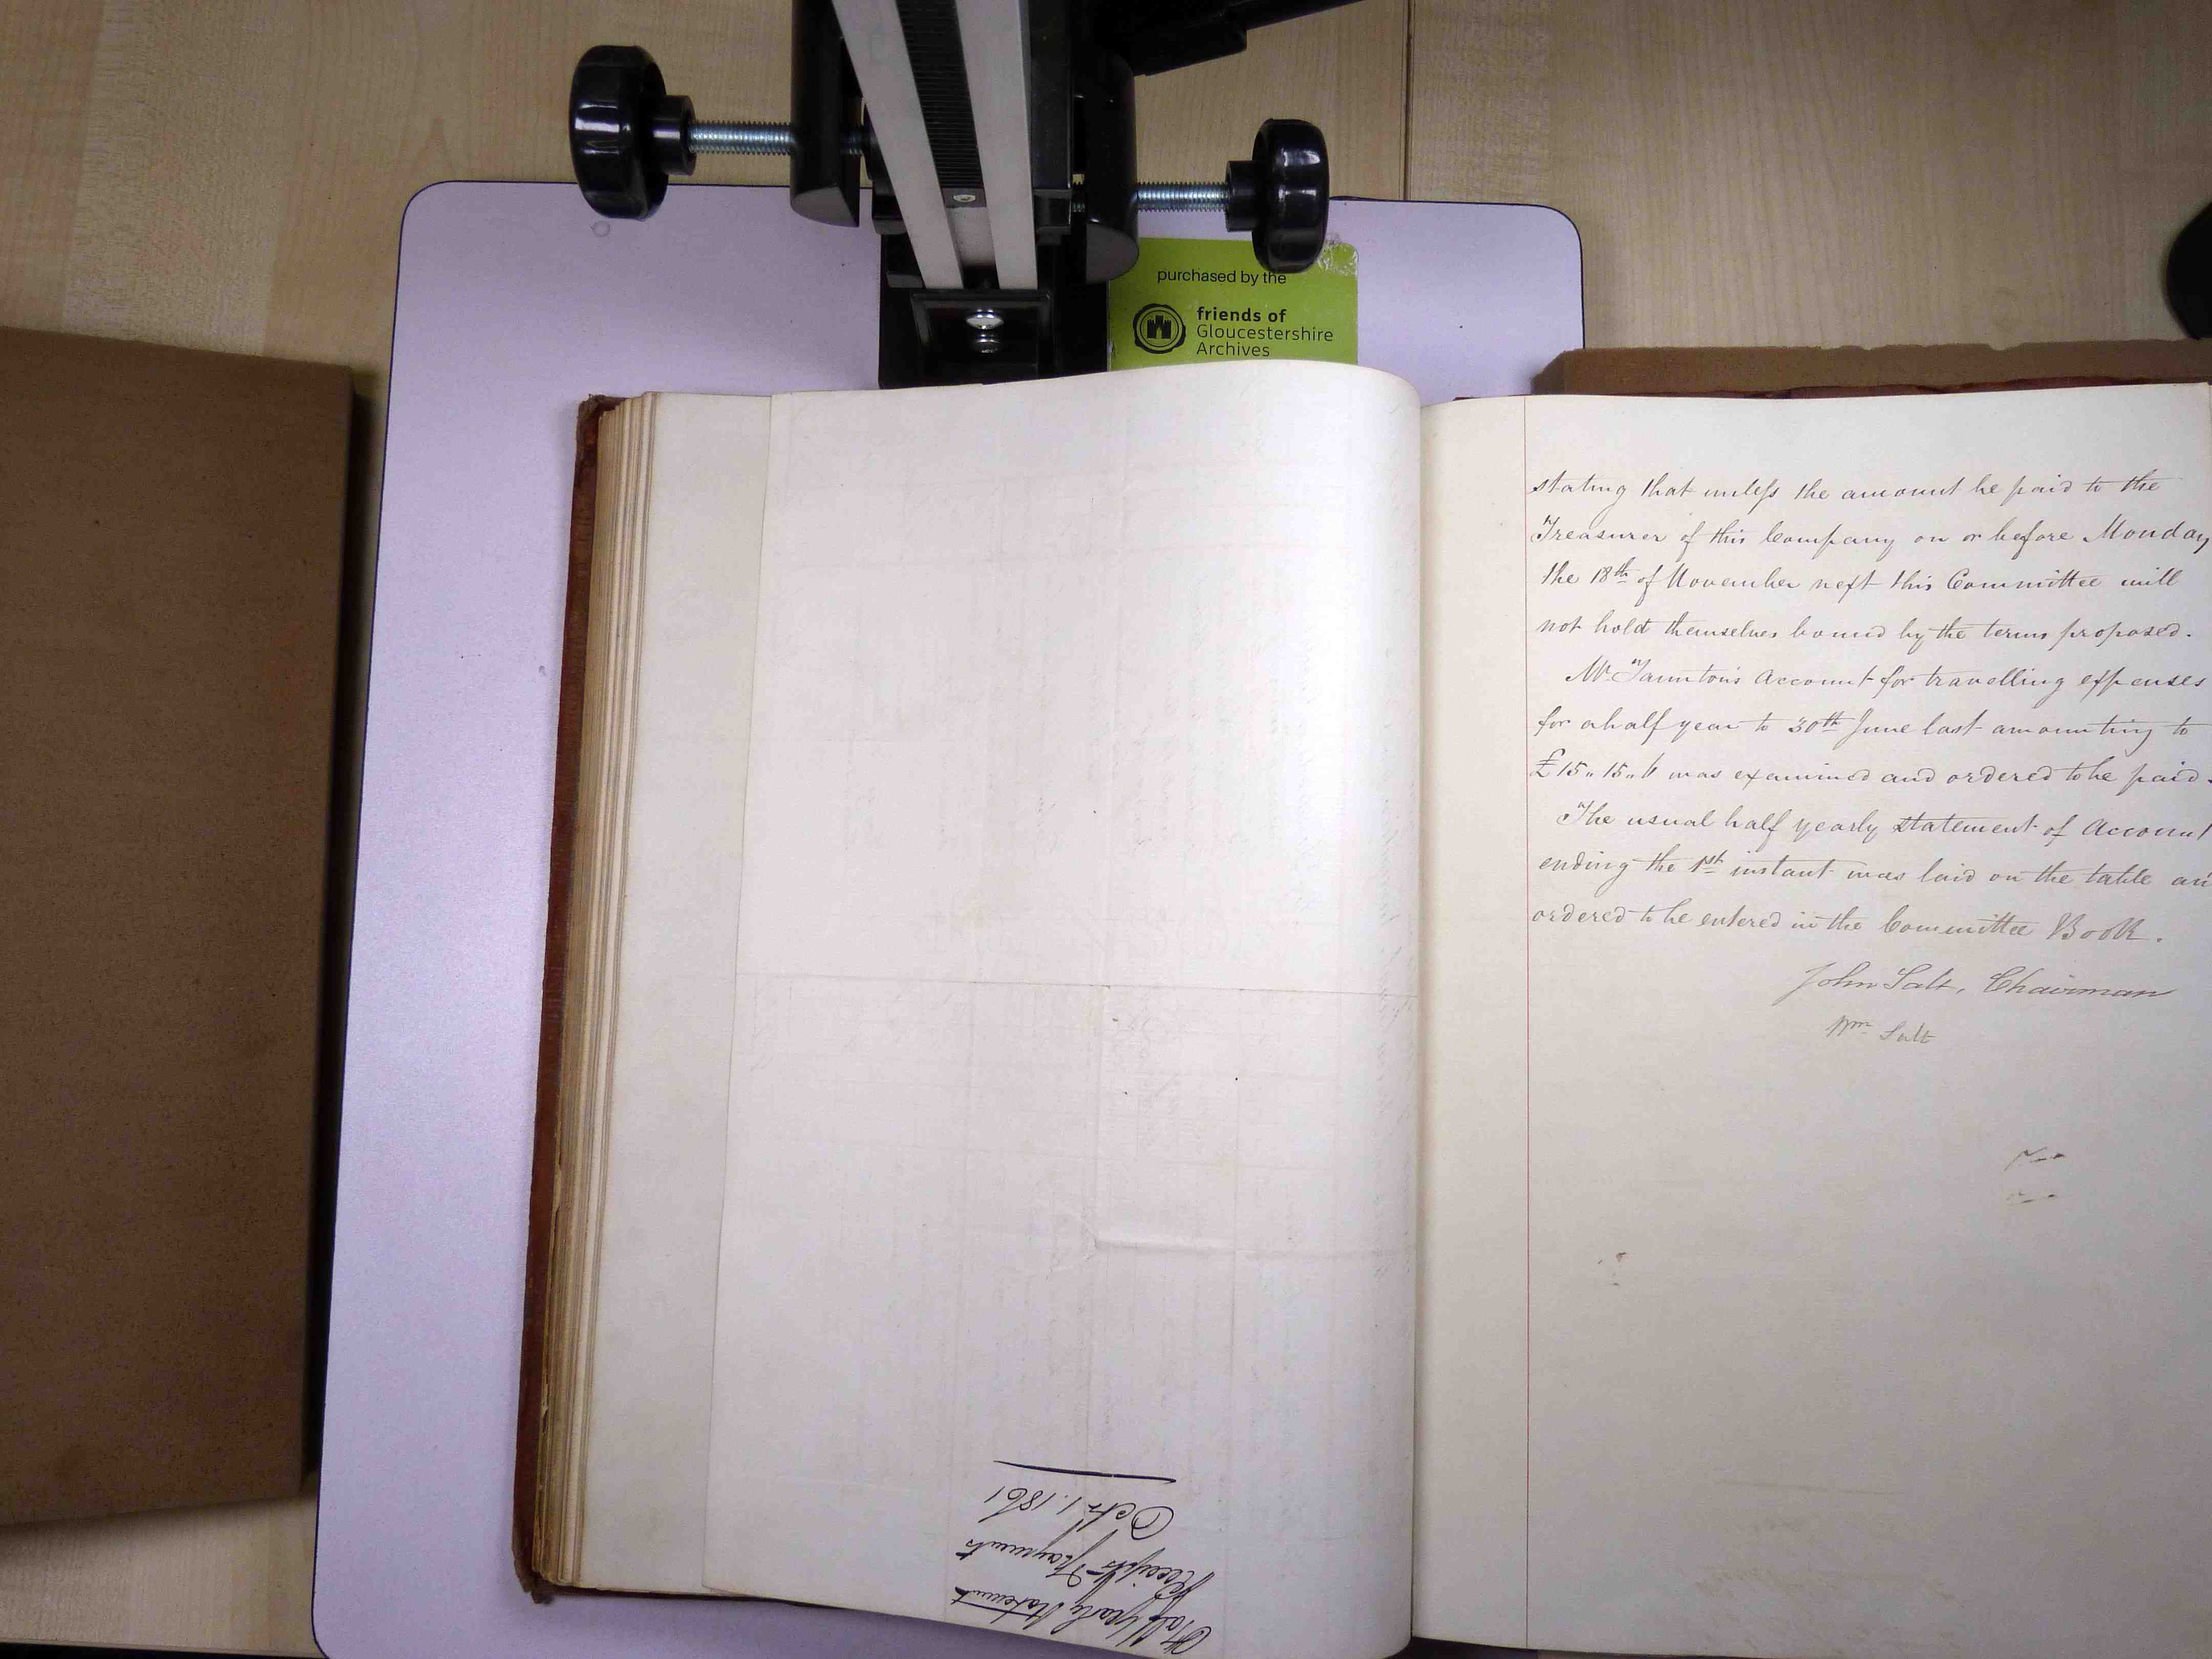 purchased by the
friends of
Gloucestershire
Archives
Half yearly Statement
of
Receipts & Payments
Octr. 1. 1861
stating that unless the amount be paid to the
Treasurer of this Company on or before Monday
the 18th of November next this Committee will
not hold themselves bound by the terms proposed.
Mr. Taunton's Account for travelling expenses
for a half year to 30th June last amounting to
£15.. 15.. 6 was examined and ordered to be paid.
The usual half yearly statement of Account
ending the 1st instant was laid on the table an
ordered to be entered in the Committee Book.
John Salt, Chairman
Wm Salt